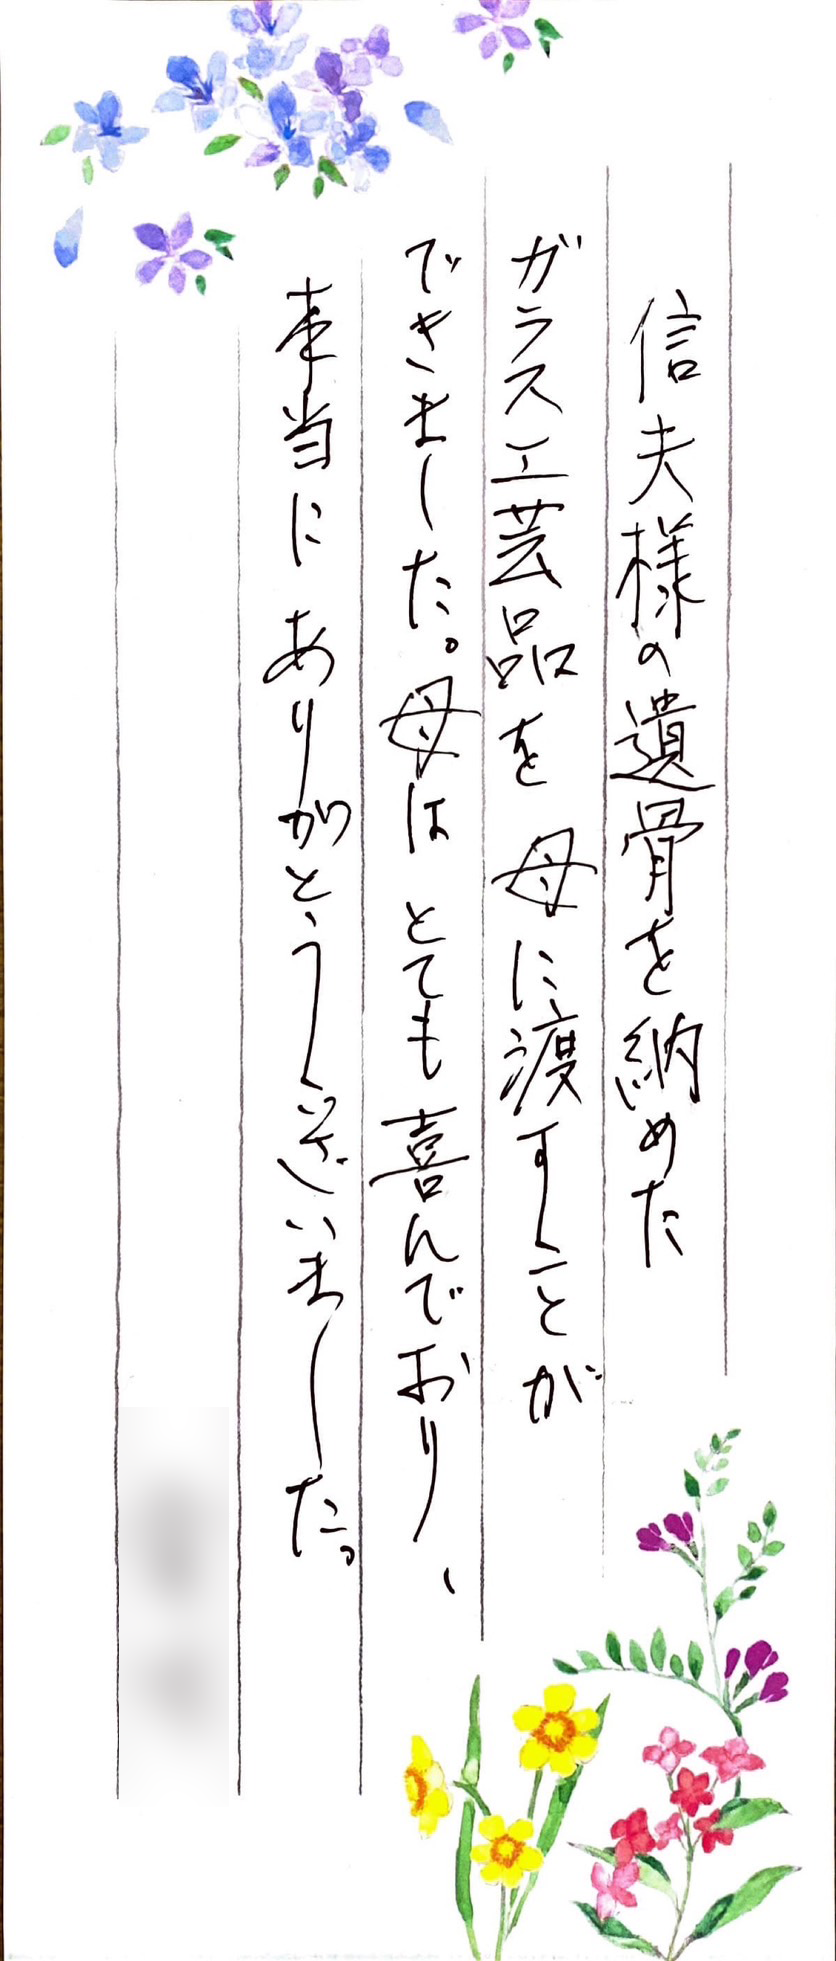 信夫様の遺骨を納めた
ガラス工芸品を母に渡すことが
できました。母はとても喜んでおり、
本当にありがとうございました。